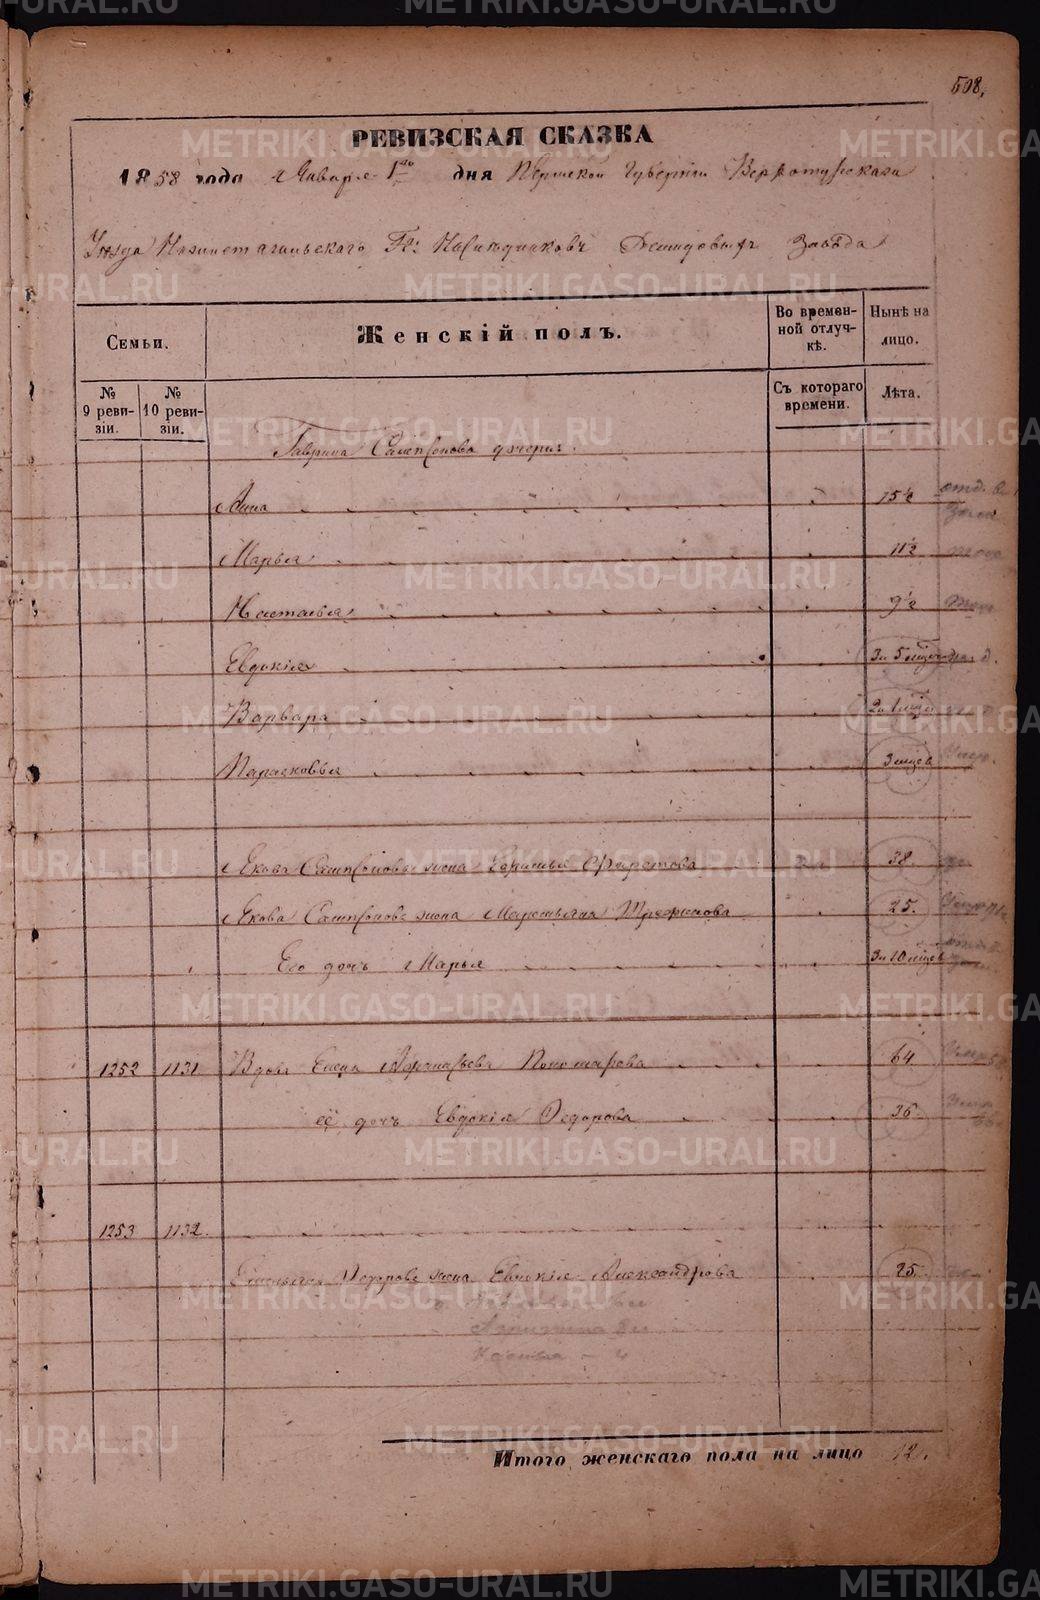 508.
РЕВИЗСКАЯ СКАЗКА
1858 года Января 1го дня Пермской Губерніи Верхотурскаго
Уезда Нижнетагильскаго Гг: Наследниковъ Демидовыхъ Завода
Семьи.
Женскій полъ.
Во времен-
ной отлуч-
кѣ.
Нынѣ на
лицо.
№
9 реви-
зіи.
№
10 реви-
зіи.
Съ котораго
времени.
Лѣта.
Гаврила Сампсонова дочери
Анна 15½
Марья 11½
Наталья 9½
Евдокія 3и 5 мцовъ
Варвара 2и 1 мцъ
Парасковья 3 мцев
Екова Сампсонова жена 38.
Екова Сампсонова жена Трефилова 25.
Его дочь Марья 3и 10 мцев
1252 1131 Вдова Елена Пономарева 64
её дочь Евдокія Федорова 36
1253 1132.
жена Евдокія Александрова 25
Итого женскаго пола на лицо 12.
METRIKI.GASO-URAL.RU